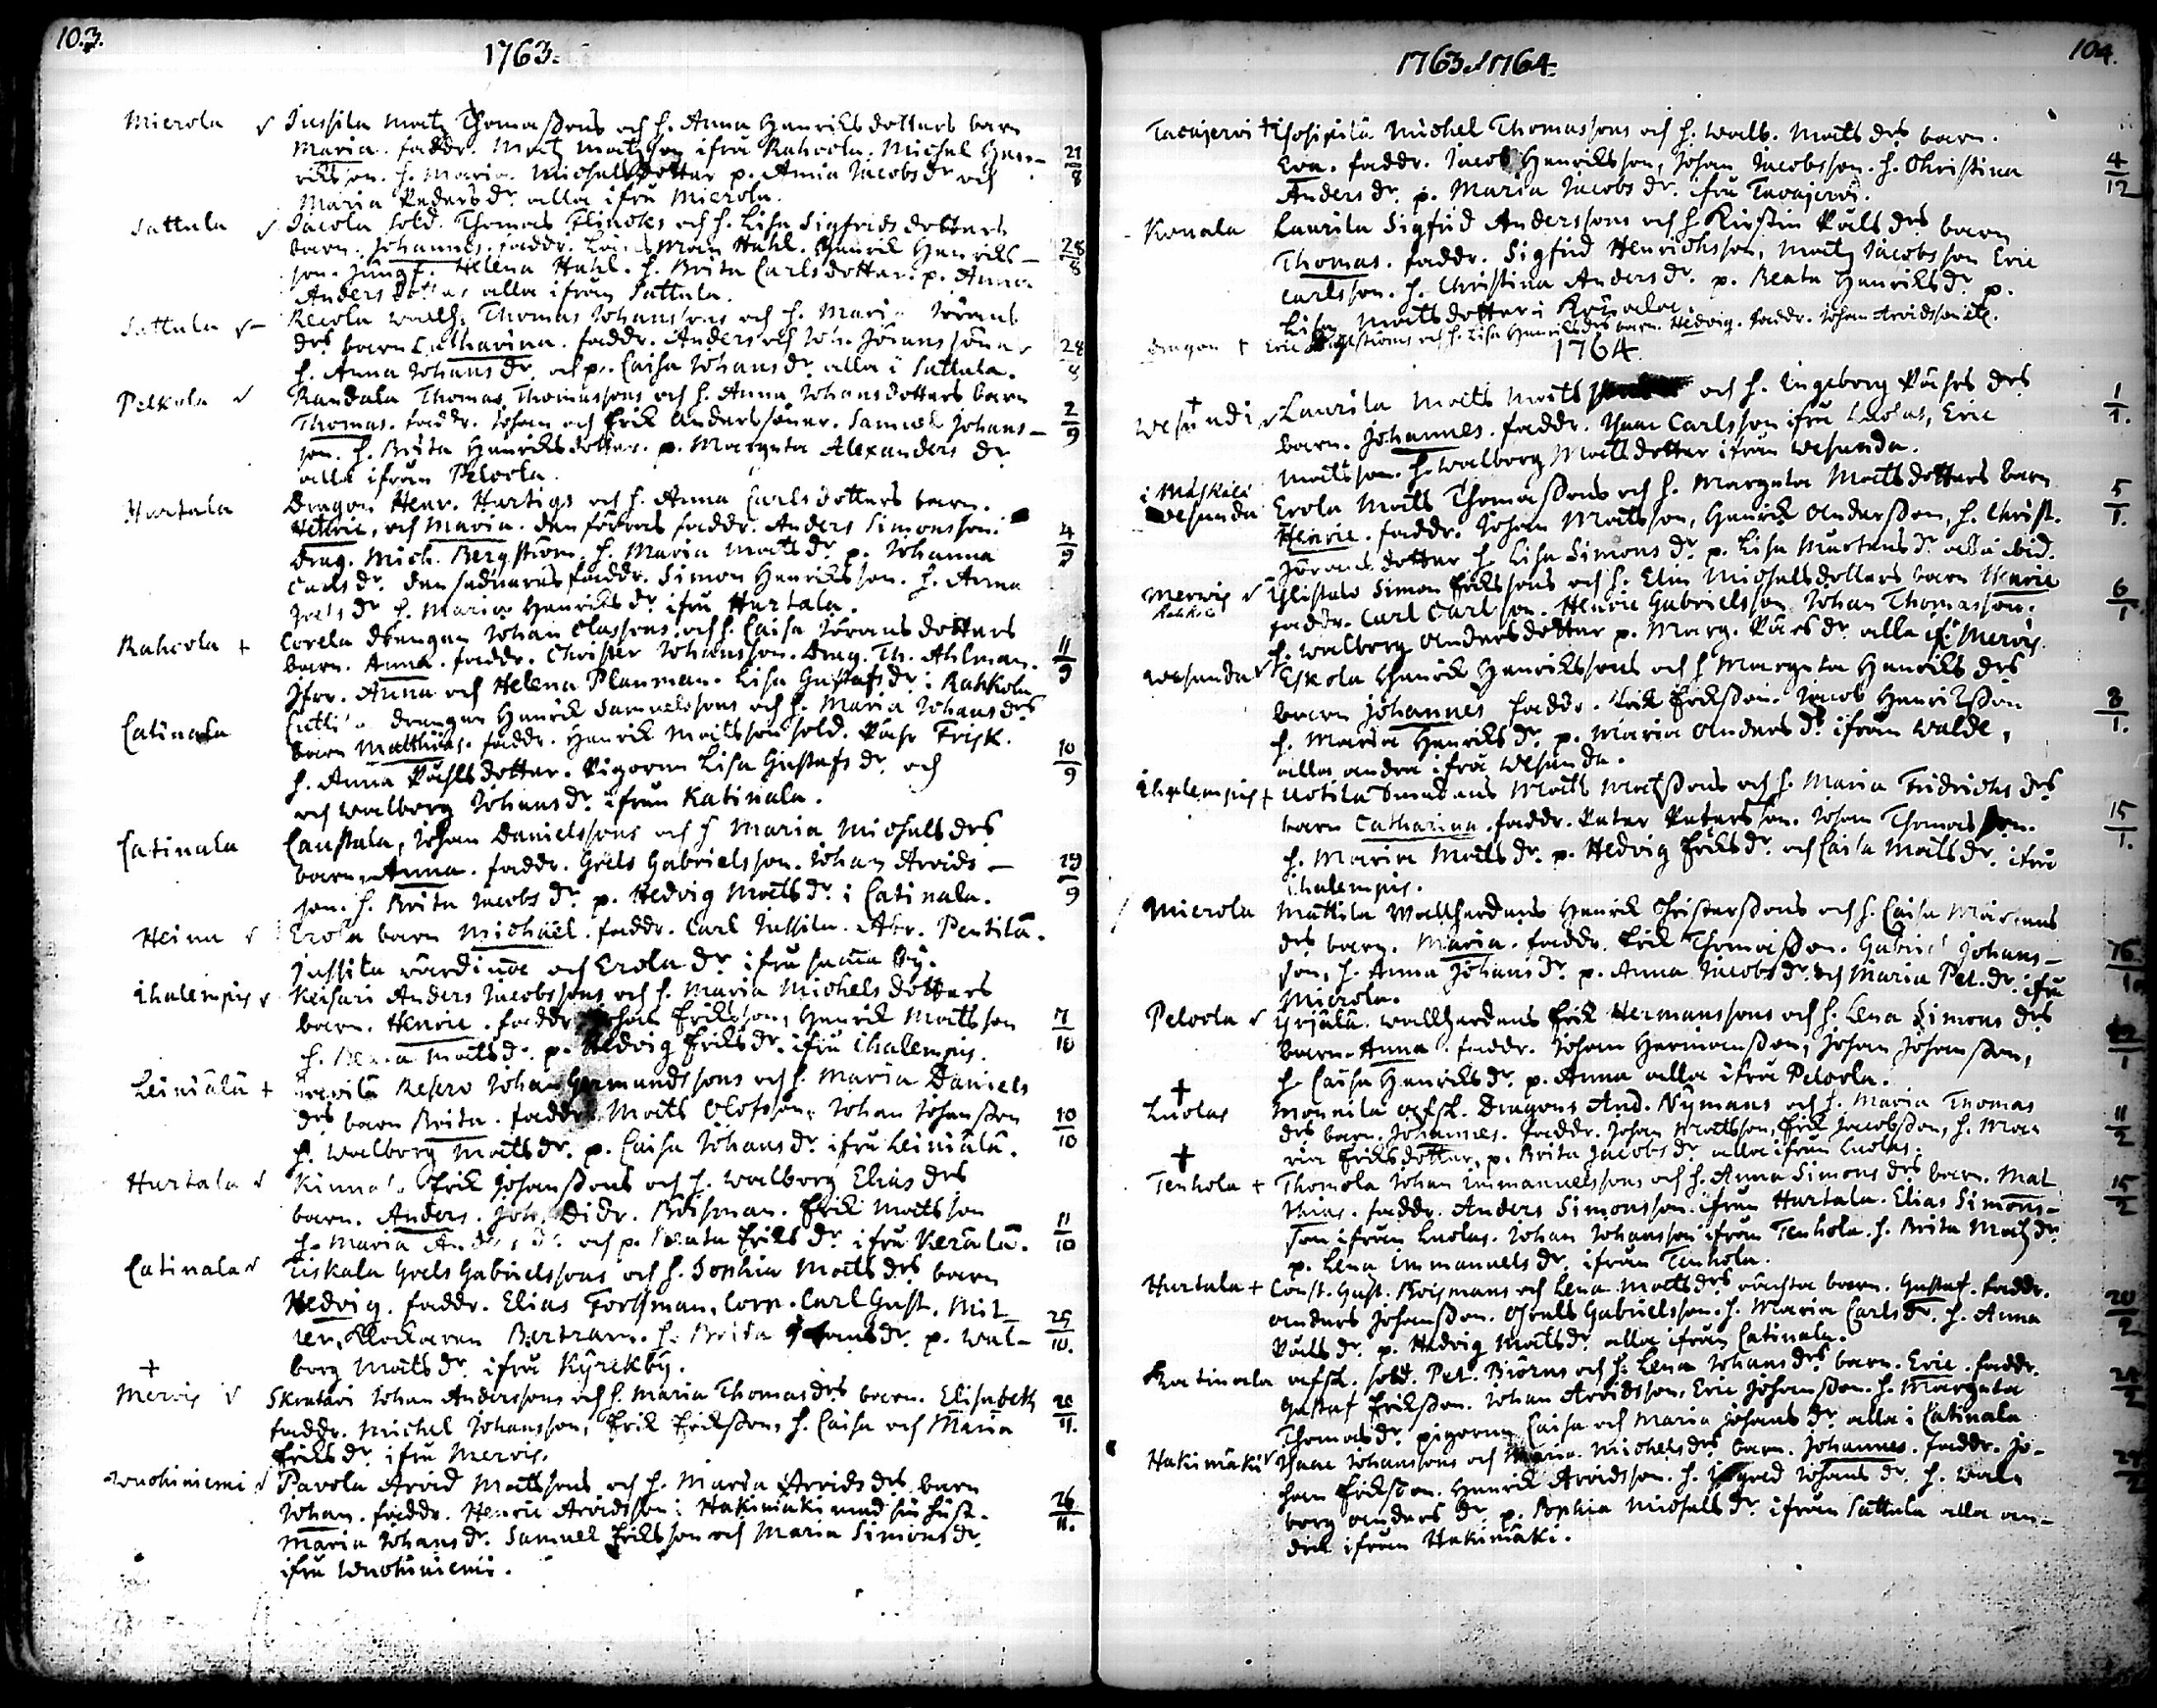 103.
1763.
Mierola Jussila Matz Thomæssons och h. Anna Henriksdotters barn
Maria. faddr. Matz Matzson ifrå Rahcola. Michel Hen-
riksson. h. Maria Michelsdotter p. Anna Jacobsdr och 21/8
Maria Pedersdr alla ifrå Mierola.
Sattula Jacola sold. Thomas Flincks och h. Lisa Sigfridsdotters
barn. Johannes. faddr. Länsman Hahl. Henrik Henriks- 28/8
son. Jungf. Helena Hahl. h. Brita Carlsdotter. p. Anna
Andersdotter alla ifrån Sattula.
Sattula Recola Thomas Johanssons och h. Maria Jörans
drs barn Catharina. faddr. Anders och Joh. Jöranssöner 28/8
h. Anna Johansdr. och p. Caisa Johansdr. alla i Sattula.
Pelkola Randala Thomas Thomassons och h. Anna Johansdotters barn
Thomas. faddr. Johan och Erik Anderssöner. Samuel Johans- 2/9
son. h. Brita Henriksdotter. p. Margeta Alexanders dr
alla ifrån Pelcola.
Hurtala Dragon Henr. Hurtigs och h. Anna Carlsdotters barn.
Henric, och Maria. den förras faddr. Anders Simonsson.
Drag. Mich. Bergström. h. Maria Matsdr. p. Johanna 4/9
Carlsdr. den sednares faddr. Simon Henriksson. h. Anna
Joelsdr h. Maria Henriksdr. ifrå Hurtala.
Rahcola + Corela drengen Johan Classons. och h. Caisa Jöransdotters
barn. Anna. faddr. Christer Johansson. Drag. Th. Ahlman. 11/9
Jfr. Anna och Helena Planman. Lisa Gustafsdr. i Rahkola
Catinala drengen Henrik Samuelssons och h. Maria Johansdrs
barn Matthias. faddr. Henrik Matsson sold. Påhr Frisk. 10/9
h. Anna Påhlsdotter. Pigorna Lisa Gustafsdr. och
och Walborg Johansdr. ifrån Katinala.
Catinala Caustala, Johan Danielssons och h Maria Michelsdrs
barn. Anna. faddr. Greels Gabrielsson. Johan Arvids- 29/9
son. h. Brita Jacobsdr. p. Hedvig Matsdr. i Catinala.
Heinu Erola barn Michäel. faddr. Carl Jussila. Abr. Pentilä.
Jussila värdinna och Erola dr. ifrå samma by.
Ihalempis Keisari Anders Jacobssons och h. Maria Michelsdotters
barn. Henric. faddr. Johan Eriksson, Henrik Matsson 7/10
h. Matsdr. p. Hedvig Eriksdr. ifrå Ihalempis.
Leiniälä + Reserv Johan Germundssons och h. Maria Daniels
drs barn Brita. faddr. Mats Olofsson. Johan Johansson 10/10
h. Walborg Matsdr. p. Caisa Johansdr. ifrå Leiniälä.
Hurtala Erik Johanssons och h. Walborg Elias drs
barn. Anders. Joh. Didr. Boisman. Erik Matsson
h. Maria och p. Beata Eriksdr. ifrå Kerälä. 11/10
Catinala Tiskala Greels Gabrielssons och h. Sophia Matsdrs barn
Hedvig. faddr. Elias Forssman. Corp. Carl Gust. Mil-
ler. Klockaren Bertram. h. Brita Johansdr. p. Wal- 29/10.
borg Matsdr. ifrå Kyrckby.
+
Mervis Skentari Johan Anderssons och h. Maria Thomasdrs barn. Elisabeth
faddr. Michel Johansson, Erik Eriksson, h. Caisa och Maria 20/11.
Eriksdr. ifrå Mervis.
Wuohiniemi Pavola Arvid Matssons och h. Maria Arvidsdrs barn
Johan. faddr. Henric Arvidsson i Hakimäki med sin hust. 26/11.
Maria Johansdr. Samuel Eriksson och Maria Simonsdr.
ifrå Wuohiniemi.
104.
1763. 1764.
Tavajervi + Michel Thomassons och h. Walb. Mats drs barn.
Eva. faddr. Jacob Henriksson, Johan Jacobsson. h. Christina 4/12
Andersdr. p. Maria Jacobsdr. ifrå Tavajervi.
Konala Laurila Sigfrid Anderssons och h Kirstin Påls drs barn
Thomas. faddr. Sigfrid Henrichsson, Matz Jacobsson Eric
Carlsson. h. Christina Andersdr. p. Beata Henriksdr. p.
Lisa Matsdotter i Konala.
Dragon + Eric och h. Lisa Henriksdrs barn. Hedvig. faddr. Johan Arvidsson etc.
1764
+
Wesundi Laurila Mats Mats och h. Ingeborg Påhrs drs
barn. Johannes. faddr. Isaac Carlsson ifrå Luolas, Eric 1/1.
Matsson. h. Walborg Matsdotter ifrån Wesunda.
i Mäskälä
Wesunda Erola Mats Thomassons och h. Margeta Matsdotters barn
Henric. faddr. Johan Matsson, Henrik Andersson, h. Christ. 5/1.
Jöransdotter h. Lisa Simonsdr. p. Lisa Mårtensdr. alla ibid.
Mervis Simon Erikssons och h. Elin Michelsdotters barn Henric
faddr. Carl Carlsson. Henric Gabrielsson Johan Thomasson. 6/1
h. Walborg Andersdotter p. Marg. Påhrsdr. alla if. Mervis.
Wesunda Eskola Henrik Henrikssons och h Margeta Henriks drs
barn Johannes faddr. Erik Eriksson. Jacob Henriksson 8/1.
h. Maria Henriksdr. p. Maria Andersdr. ifrån Walde,
alla andra ifrå Wesunda.
Ihalempis + Uotila Mats Matssons och h. Maria Fridrichs drs
barn Catharina. faddr. Peter Petersson. Johan Thomasson. 15/1.
h. Maria Matsdr. p. Hedvig Eriksdr. och Caisa Matsdr. ifrå
Ihalempis.
Mierola Mattila Wallherdens Henrik Christerssons och h. Caisa Mårtens
drs barn. Maria. faddr. Erik Thomasson. Gabriel Johans-
son, h. Anna Johansdr. p. Anna Jacobsdr. och Maria Pet.dr. ifrå
Mierola.
Pelcola Yrjälä. Wallherdens Erik Hermanssons och h. Lena Simons drs
barn. Anna. faddr. Johan Hermansson, Johan Johansson,
h. Caisa Henriksdr. p. Anna alla ifrå Pelcola.
+
Luolas Monnila afsk. Dragons And. Nymans och h. Maria Thomas
drs barn. Johannes. faddr. Johan Matsson, Erik Jacobsson, h. Ma- 11/2
ria Eriksdotter, p. Brita Jacobsdr. alla ifrån Luolas.
+
Tenhola + Thomola Johan Immanuelssons och h. Anna Simons drs barn. Mat
thias. faddr. Anders Simonsson ifrån Hurtala. Elias Simons- 15/2
son ifrån Luolas. Johan Johansson ifrån Tenhola. h. Brita Matzdr.
p. Lena Immanuelsdr. ifrån Tenhola.
Hurtala + Const. Gust. Boismans och Lena Matsdrs oächta barn. Gustaf. faddr.
Anders Johansson. Greels Gabrielsson. h. Maria Carlsdr. h. Anna 20/2
Pålsdr. p. Hedvig Matsdr. alla ifrån Catinala.
Katinala afsk. sold. Pet. Biörns och h. Lena Johansdrs barn. Eric. faddr.
Gustaf Eriksson. Johan Arvidsson, Eric Johansson. h. Margeta
Thomasdr. pigorna Caisa och Maria Johansdr. alla i Catinala
Hakimäki Isaac Johanssons och Maria Michelsdrs barn. Johannes. faddr. Jo-
han Eriksson. Henrik Arvidsson. h. Johansdr. h. Wal-
borg Andersdr. p. Sophia Michelsdr. ifrån Sattula alla an-
dra ifrån Hakimäki.